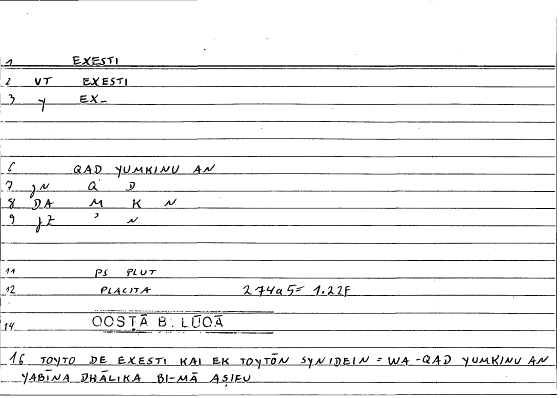 1 EXESTI
2 VT EXESTI
3 y EX-
6 QAD YUMKINU AN
7 JN Q D
8 DA M K N
9 JZ ' N
11 PS PLUT
12 PLACITA 274a5= 1.22F
14 QOSṬĀ B. LŪQĀ
16 TOYTO DE EXESTI KAI EK TOYTŌN SYNIDEIN = WA-QAD YUMKINU AN
YABĪNA DHĀLIKA BI-MĀ AṢIFU